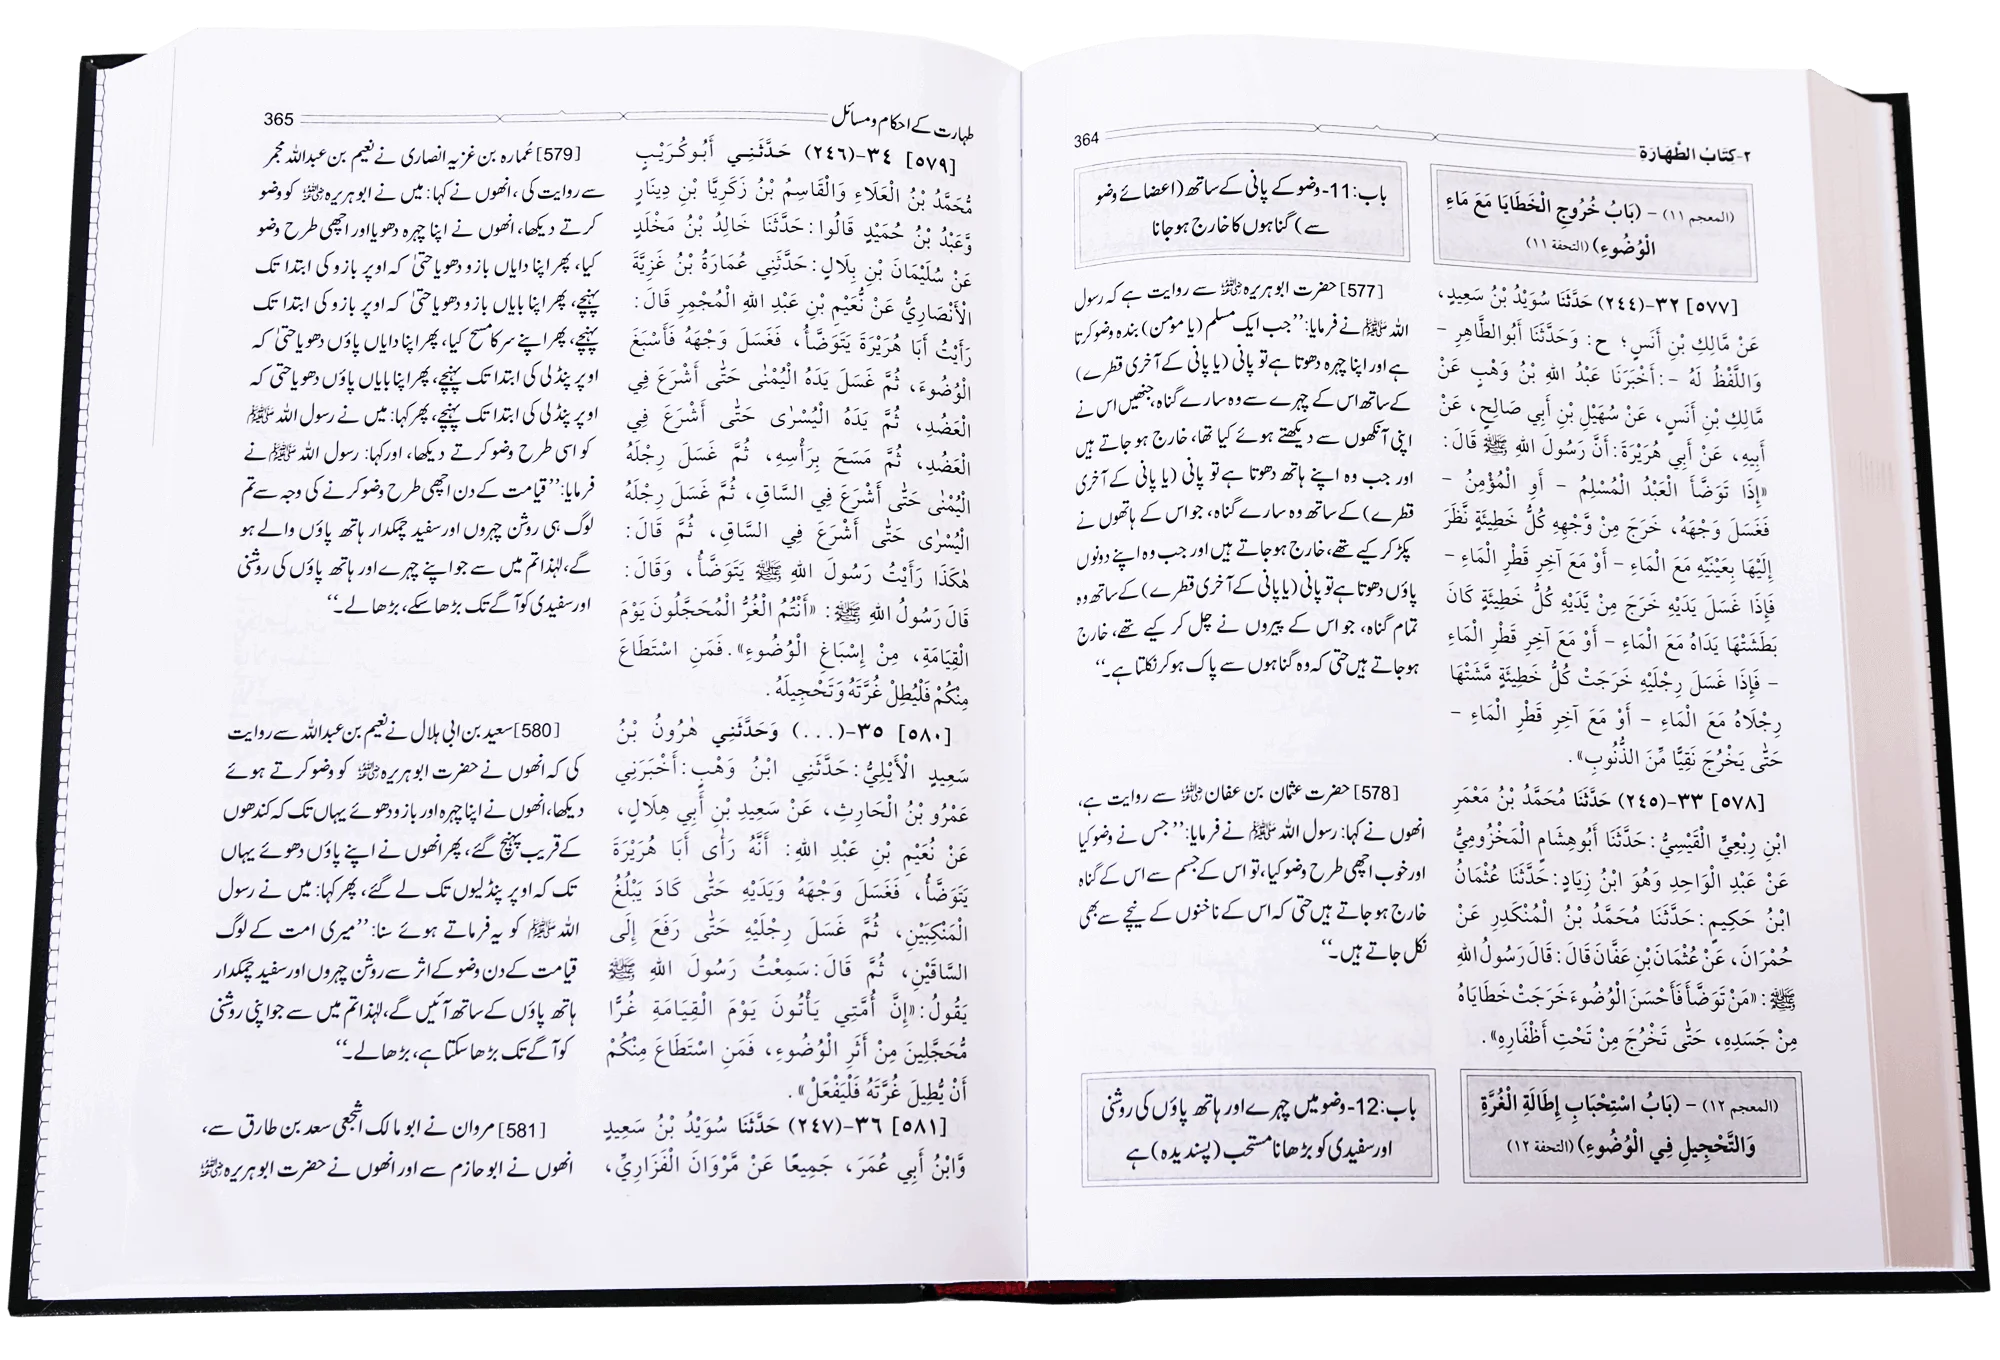 ٢-كِتَابُ الطَّهَارَةِ
364
(المعجم ١١) - (بَابُ خُرُوجِ الْخَطَايَا مَعَ مَاءِ
الْوُضُوءِ) (التحفة ١١)
[٥٧٧] ٣٢-(٢٤٤) حَدَّثَنَا سُوَيْدُ بْنُ سَعِيدٍ،
عَنْ مَّالِكِ بْنِ أَنَسٍ؛ ح: وَحَدَّثَنَا أَبُوالطَّاهِرِ -
وَاللَّفْظُ لَهُ -: أَخْبَرَنَا عَبْدُ اللهِ بْنُ وَهْبٍ عَنْ
مَّالِكِ بْنِ أَنَسٍ، عَنْ سُهَيْلِ بْنِ أَبِي صَالِحٍ، عَنْ
أَبِيهِ، عَنْ أَبِي هُرَيْرَةَ: أَنَّ رَسُولَ اللهِ ﷺ قَالَ:
«إِذَا تَوَضَّأَ الْعَبْدُ الْمُسْلِمُ - أَوِ الْمُؤْمِنُ -
فَغَسَلَ وَجْهَهُ، خَرَجَ مِنْ وَّجْهِهِ كُلُّ خَطِيئَةٍ نَّظَرَ
إِلَيْهَا بِعَيْنَيْهِ مَعَ الْمَاءِ - أَوْ مَعَ آخِرِ قَطْرِ الْمَاءِ -
فَإِذَا غَسَلَ يَدَيْهِ خَرَجَ مِنْ يَّدَيْهِ كُلُّ خَطِيئَةٍ كَانَ
بَطَشَتْهَا يَدَاهُ مَعَ الْمَاءِ - أَوْ مَعَ آخِرِ قَطْرِ الْمَاءِ
- فَإِذَا غَسَلَ رِجْلَيْهِ خَرَجَتْ كُلُّ خَطِيئَةٍ مَّشَتْهَا
رِجْلَاهُ مَعَ الْمَاءِ - أَوْ مَعَ آخِرِ قَطْرِ الْمَاءِ -
حَتّٰى يَخْرُجَ نَقِيًّا مِّنَ الذُّنُوبِ».
[٥٧٨] ٣٣-(٢٤٥) حَدَّثَنَا مُحَمَّدُ بْنُ مَعْمَرِ
ابْنِ رِبْعِيٍّ الْقَيْسِيُّ: حَدَّثَنَا أَبُوهِشَامٍ الْمَخْزُومِيُّ
عَنْ عَبْدِ الْوَاحِدِ وَهُوَ ابْنُ زِيَادٍ: حَدَّثَنَا عُثْمَانُ
ابْنُ حَكِيمٍ: حَدَّثَنَا مُحَمَّدُ بْنُ الْمُنْكَدِرِ عَنْ
حُمْرَانَ، عَنْ عُثْمَانَ بْنِ عَفَّانَ قَالَ: قَالَ رَسُولُ اللهِ
ﷺ: «مَنْ تَوَضَّأَ فَأَحْسَنَ الْوُضُوءَ خَرَجَتْ خَطَايَاهُ
مِنْ جَسَدِهِ، حَتّٰى تَخْرُجَ مِنْ تَحْتِ أَظْفَارِهِ».
(المعجم ١٢) - (بَابُ اسْتِحْبَابِ إِطَالَةِ الْغُرَّةِ
وَالتَّحْجِيلِ فِي الْوُضُوءِ) (التحفة ١٢)
باب:11-وضو کے پانی کے ساتھ (اعضائے وضو
سے) گناہوں کا خارج ہو جانا
[577] حضرت ابو ہریرہ رضی اللہ عنہ سے روایت ہے کہ رسول
اللہ ﷺ نے فرمایا: ’’جب ایک مسلم (یا مومن) بندہ وضو کرتا
ہے اور اپنا چہرہ دھوتا ہے تو پانی (یا پانی کے آخری قطرے)
کے ساتھ اس کے چہرے سے وہ سارے گناہ، جنھیں اس نے
اپنی آنکھوں سے دیکھتے ہوئے کیا تھا، خارج ہو جاتے ہیں
اور جب وہ اپنے ہاتھ دھوتا ہے تو پانی (یا پانی کے آخری
قطرے) کے ساتھ وہ سارے گناہ، جو اس کے ہاتھوں نے
پکڑ کر کیے تھے، خارج ہو جاتے ہیں اور جب وہ اپنے دونوں
پاؤں دھوتا ہے تو پانی (یا پانی کے آخری قطرے) کے ساتھ وہ
تمام گناہ، جو اس کے پیروں نے چل کر کیے تھے، خارج
ہو جاتے ہیں حتی کہ وہ گناہوں سے پاک ہو کر نکلتا ہے۔‘‘
[578] حضرت عثمان بن عفان رضی اللہ عنہ سے روایت ہے،
انھوں نے کہا: رسول اللہ ﷺ نے فرمایا: ’’جس نے وضو کیا
اور خوب اچھی طرح وضو کیا، تو اس کے جسم سے اس کے گناہ
خارج ہو جاتے ہیں حتی کہ اس کے ناخنوں کے نیچے سے بھی
نکل جاتے ہیں۔‘‘
باب:12-وضو میں چہرے اور ہاتھ پاؤں کی روشنی
اور سفیدی کو بڑھانا مستحب (پسندیدہ) ہے
طہارت کے احکام و مسائل
365
[٥٧٩] ٣٤-(٢٤٦) حَدَّثَنِي أَبُوكُرَيْبٍ
مُّحَمَّدُ بْنُ الْعَلَاءِ وَالْقَاسِمُ بْنُ زَكَرِيَّا بْنِ دِينَارٍ
وَّعَبْدُ بْنُ حُمَيْدٍ قَالُوا: حَدَّثَنَا خَالِدُ بْنُ مَخْلَدٍ
عَنْ سُلَيْمَانَ بْنِ بِلَالٍ: حَدَّثَنِي عُمَارَةُ بْنُ غَزِيَّةَ
الْأَنْصَارِيُّ عَنْ نُّعَيْمِ بْنِ عَبْدِ اللهِ الْمُجْمِرِ قَالَ:
رَأَيْتُ أَبَا هُرَيْرَةَ يَتَوَضَّأُ، فَغَسَلَ وَجْهَهُ فَأَسْبَغَ
الْوُضُوءَ، ثُمَّ غَسَلَ يَدَهُ الْيُمْنٰى حَتّٰى أَشْرَعَ فِي
الْعَضُدِ، ثُمَّ يَدَهُ الْيُسْرٰى حَتّٰى أَشْرَعَ فِي
الْعَضُدِ، ثُمَّ مَسَحَ بِرَأْسِهِ، ثُمَّ غَسَلَ رِجْلَهُ
الْيُمْنٰى حَتّٰى أَشْرَعَ فِي السَّاقِ، ثُمَّ غَسَلَ رِجْلَهُ
الْيُسْرٰى حَتّٰى أَشْرَعَ فِي السَّاقِ، ثُمَّ قَالَ:
هٰكَذَا رَأَيْتُ رَسُولَ اللهِ ﷺ يَتَوَضَّأُ، وَقَالَ:
قَالَ رَسُولُ اللهِ ﷺ: «أَنْتُمُ الْغُرُّ الْمُحَجَّلُونَ يَوْمَ
الْقِيَامَةِ، مِنْ إِسْبَاغِ الْوُضُوءِ». فَمَنِ اسْتَطَاعَ
مِنْكُمْ فَلْيُطِلْ غُرَّتَهُ وَتَحْجِيلَهُ.
[٥٨٠] ٣٥-(...) وَحَدَّثَنِي هٰرُونُ بْنُ
سَعِيدٍ الْأَيْلِيُّ: حَدَّثَنِي ابْنُ وَهْبٍ: أَخْبَرَنِي
عَمْرُو بْنُ الْحَارِثِ، عَنْ سَعِيدِ بْنِ أَبِي هِلَالٍ،
عَنْ نُعَيْمِ بْنِ عَبْدِ اللهِ: أَنَّهُ رَأٰى أَبَا هُرَيْرَةَ
يَتَوَضَّأُ، فَغَسَلَ وَجْهَهُ وَيَدَيْهِ حَتّٰى كَادَ يَبْلُغُ
الْمَنْكِبَيْنِ، ثُمَّ غَسَلَ رِجْلَيْهِ حَتّٰى رَفَعَ إِلَى
السَّاقَيْنِ، ثُمَّ قَالَ: سَمِعْتُ رَسُولَ اللهِ ﷺ
يَقُولُ: «إِنَّ أُمَّتِي يَأْتُونَ يَوْمَ الْقِيَامَةِ غُرًّا
مُّحَجَّلِينَ مِنْ أَثَرِ الْوُضُوءِ، فَمَنِ اسْتَطَاعَ مِنْكُمْ
أَنْ يُّطِيلَ غُرَّتَهُ فَلْيَفْعَلْ».
[٥٨١] ٣٦-(٢٤٧) حَدَّثَنَا سُوَيْدُ بْنُ سَعِيدٍ
وَّابْنُ أَبِي عُمَرَ، جَمِيعًا عَنْ مَّرْوَانَ الْفَزَارِيِّ،
[579] عُمارہ بن غزیہ انصاری نے نعیم بن عبداللہ مجمر
سے روایت کی، انھوں نے کہا: میں نے ابو ہریرہ رضی اللہ عنہ کو وضو
کرتے دیکھا، انھوں نے اپنا چہرہ دھویا اور اچھی طرح وضو
کیا، پھر اپنا دایاں بازو دھویا حتیٰ کہ اوپر بازو کی ابتدا تک
پہنچے، پھر اپنا بایاں بازو دھویا حتیٰ کہ اوپر بازو کی ابتدا تک
پہنچے، پھر اپنے سر کا مسح کیا، پھر اپنا دایاں پاؤں دھویا حتیٰ کہ
اوپر پنڈلی کی ابتدا تک پہنچے، پھر اپنا بایاں پاؤں دھویا حتی کہ
اوپر پنڈلی کی ابتدا تک پہنچے، پھر کہا: میں نے رسول اللہ ﷺ
کو اسی طرح وضو کرتے دیکھا، اور کہا: رسول اللہ ﷺ نے
فرمایا: ’’قیامت کے دن اچھی طرح وضو کرنے کی وجہ سے تم
لوگ ہی روشن چہروں اور سفید چمکدار ہاتھ پاؤں والے ہو
گے، لہٰذا تم میں سے جو اپنے چہرے اور ہاتھ پاؤں کی روشنی
اور سفیدی کو آگے تک بڑھا سکے، بڑھا لے۔‘‘
[580] سعید بن ابی ہلال نے نعیم بن عبداللہ سے روایت
کی کہ انھوں نے حضرت ابو ہریرہ رضی اللہ عنہ کو وضو کرتے ہوئے
دیکھا، انھوں نے اپنا چہرہ اور بازو دھوئے یہاں تک کہ کندھوں
کے قریب پہنچ گئے، پھر انھوں نے اپنے پاؤں دھوئے یہاں
تک کہ اوپر پنڈلیوں تک لے گئے، پھر کہا: میں نے رسول
اللہ ﷺ کو یہ فرماتے ہوئے سنا: ’’میری امت کے لوگ
قیامت کے دن وضو کے اثر سے روشن چہروں اور سفید چمکدار
ہاتھ پاؤں کے ساتھ آئیں گے، لہٰذا تم میں سے جو اپنی روشنی
کو آگے تک بڑھا سکتا ہے، بڑھا لے۔‘‘
[581] مروان نے ابو مالک اشجعی سعد بن طارق سے،
انھوں نے ابو حازم سے اور انھوں نے حضرت ابو ہریرہ رضی اللہ عنہ